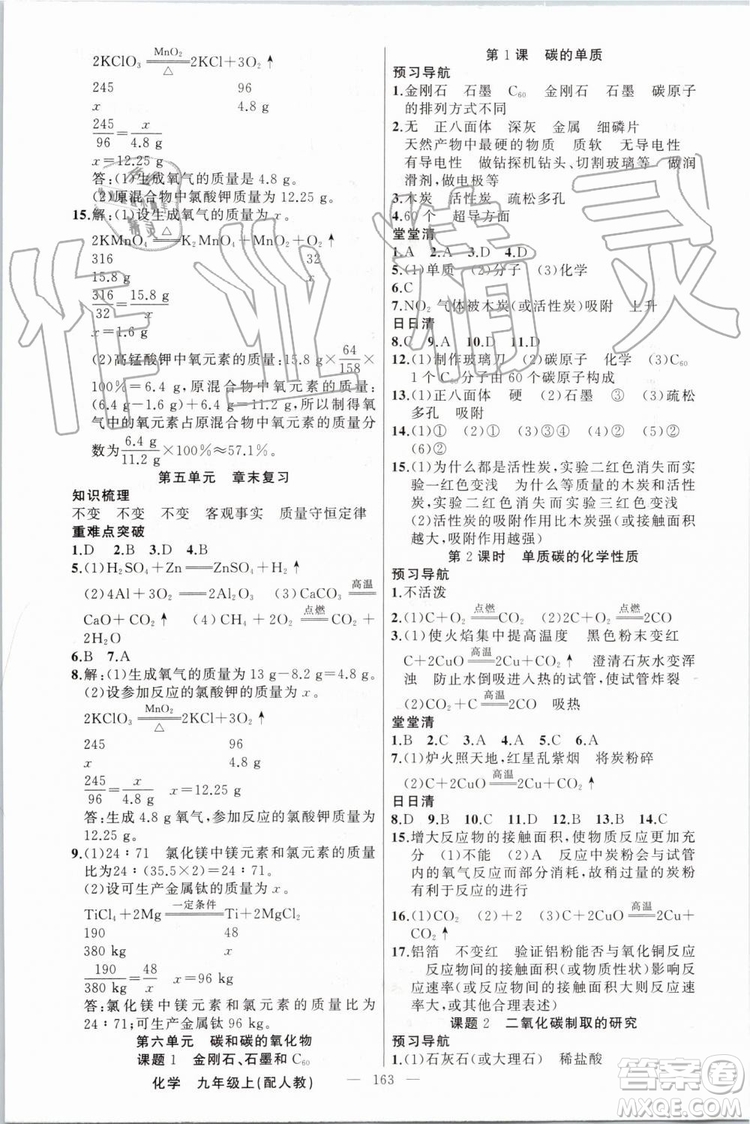 2KClO₃ $\xrightarrow[\triangle]{MnO_2}$ 2KCl+3O₂↑
245 96
x 4.8 g
$\frac{245}{96}=\frac{x}{4.8\ g}$
x=12.25 g
答:(1)生成氧气的质量是 4.8 g;
(2)原混合物中氯酸钾的质量为 12.25 g。
15.解:(1)设生成氧气的质量为 x。
2KMnO₄ $\xrightarrow{\triangle}$ K₂MnO₄+MnO₂+O₂↑
316 32
15.8 g x
$\frac{316}{32}=\frac{15.8\ g}{x}$
x=1.6 g
(2)高锰酸钾中氧元素的质量:15.8 g×$\frac{64}{158}$×
100%=6.4 g,原混合物中氧元素的质量:
(6.4 g-1.6 g)+6.4 g=11.2 g,所以制得氧
气中的氧元素占原混合物中氧元素的质量分
数为$\frac{6.4\ g}{11.2\ g}$×100%≈57.1%。
第五单元 章末复习
知识梳理
不变 不变 不变 客观事实 质量守恒定律
重难点突破
1.D 2.B 3.A 4.B
5.(1)H₂SO₄+Zn══ZnSO₄+H₂↑
(2)4Al+3O₂══2Al₂O₃ (3)CaCO₃ $\xrightarrow{高温}$
CaO+CO₂↑ (4)CH₄+2O₂ $\xrightarrow{点燃}$ CO₂+
2H₂O
6.B 7.A
8.解:(1)生成氧气的质量为 13 g-8.2 g=4.8 g。
(2)设参加反应的氯酸钾的质量为 x。
2KClO₃ $\xrightarrow[\triangle]{MnO_2}$ 2KCl+3O₂↑
245 96
x 4.8 g
$\frac{245}{96}=\frac{x}{4.8\ g}$ x=12.25 g
答:生成 4.8 g 氧气,参加反应的氯酸钾质量为
12.25 g。
9.(1)24∶71 氯化镁中镁元素和氯元素的质量比
为 24∶(35.5×2)=24∶71
(2)设可生产金属钛的质量为 x。
TiCl₄+2Mg $\xrightarrow{一定条件}$ Ti+2MgCl₂
190 48
380 kg x
$\frac{190}{380\ kg}=\frac{48}{x}$ x=96 kg
答:氯化镁中镁元素和氯元素的质量比为
24∶71;可生产金属钛 96 kg。
第六单元 碳和碳的氧化物
课题 1 金刚石、石墨和 C₆₀
第 1 课 碳的单质
预习导航
1.金刚石 石墨 C₆₀ 金刚石 石墨 碳原子
的排列方式不同
2.无 正八面体 深灰 金属 细鳞片
天然产物中最硬的物质 质软 无导电性
有导电性 做钻探机钻头、切割玻璃等 做润
滑剂,做电极等
3.木炭 活性炭 疏松多孔
4.60 个 超导方面
堂堂清
1.A 2.A 3.A 4.D
5.(1)单质 (2)分子 (3)化学
6.C
7.NO₂ 气体被木炭(或活性炭)吸附 上升
日日清
8.C 9.A 10.D 11.D
12.(1)制作玻璃刀 (2)碳原子 化学 (3)C₆₀
1 个 C₆₀ 分子由 60 个碳原子构成
13.(1)正八面体 ① (2)石墨 ③ (3)疏松
多孔 吸附
14.(1)① (2)② (3)② (4)① (5)①
(6)②
15.(1)为什么都是活性炭,实验二红色消失而实
验三红色变浅 为什么同样的时间和质量的
炭,实验二红色消失而实验一红色变浅
(2)活性炭的吸附作用比木炭强(或接触面积
越大,吸附作用越强)
第 2 课时 单质碳的化学性质
预习导航
1.不活泼
2.(1)C+O₂ $\xrightarrow{点燃}$ CO₂ (2)2C+O₂ $\xrightarrow{点燃}$ 2CO
3.(1)使火焰集中提高温度 黑色粉末变红
C+2CuO $\xrightarrow{高温}$ 2Cu+CO₂↑ 澄清石灰水变浑
浊 防止水倒吸进入热的试管,使试管炸裂
(2)CO₂+C $\xrightarrow{高温}$ 2CO 吸热
堂堂清
1.B 2.C 3.A 4.C 5.D 6.B
7.(1)炉火照天地,红星乱紫烟 将炭粉碎
(2)C+2CuO $\xrightarrow{高温}$ 2Cu+CO₂↑
日日清
8.D 9.B 10.C 11.D 12.A 13.B 14.C
15.增大反应物的接触面积,使反应物更加充分
(1)不能 (2)A 反应中炭粉会与试管
内的氧气反应而部分消耗,故稍过量的炭粉
有利于反应的进行
16.(1)CO₂ (2)+2 (3)C+CO₂ $\xrightarrow{高温}$ 2CO
17.铝箔 不变红 验证铝粉能否与氧化铜反应
反应物间的接触面积(或物质性状)影响
反应速率(或反应物间的接触面积越大,反应
速率越大)
课题 2 二氧化碳制取的研究
预习导航
1.(1)石灰石(或大理石) 稀盐酸
化学 九年级上(配人教) — 163 —
作业精灵
精灵
答案圈
MXQE.COM